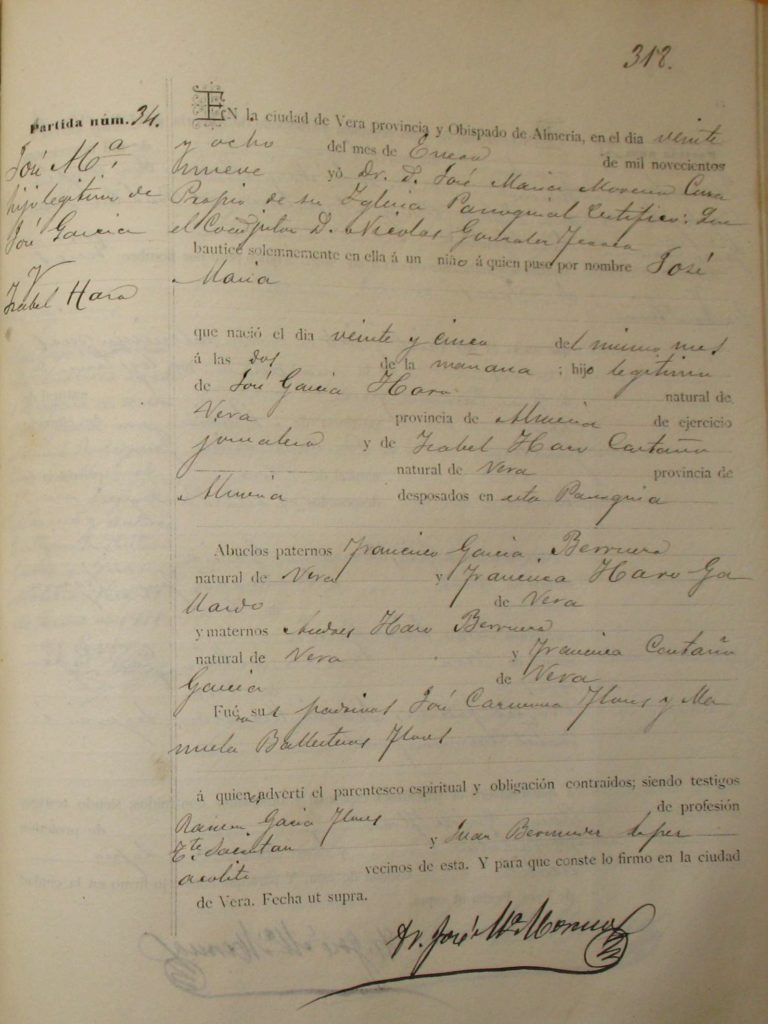 318.
Partida núm. 34.
José Mª
hijo legitimo de
José Garcia
Y
Isabel Haro
EN la ciudad de Vera provincia y Obispado de Almeria, en el dia veinte
y ocho del mes de Enero de mil novecientos
nueve yó Dr. D. José Maria Moreno Cura
Propio de su Iglesia Parroquial Certifico: Que
el Coadjutor D. Nicolas Gonzalez
bautizó solemnemente en ella á un niño á quien puso por nombre José
Maria
que nació el dia veinte y cinco del mismo mes
á las dos de la mañana; hijo legitimo
de José Garcia Haro natural de
Vera provincia de Almeria de ejercicio
jornalero y de Isabel Haro Castaño
natural de Vera provincia de
Almeria desposados en esta Parroquia
Abuelos paternos Francisco Garcia Berruezo
natural de Vera y Francisca Haro Ga
llardo de Vera
y maternos Andres Haro Berruezo
natural de Vera y Francisca Castaño
Garcia de Vera
Fueron sus padrinos José Carmona Flores y Ma
nuela Ballesteros Flores
á quienes advertí el parentesco espiritual y obligación contraidos; siendo testigos
Ramon Garcia Flores de profesión
Tte. Sacristan y Juan Bermudez Lopez
acolito vecinos de esta. Y para que conste lo firmo en la ciudad
de Vera. Fecha ut supra.
Dr. José Mª Moreno